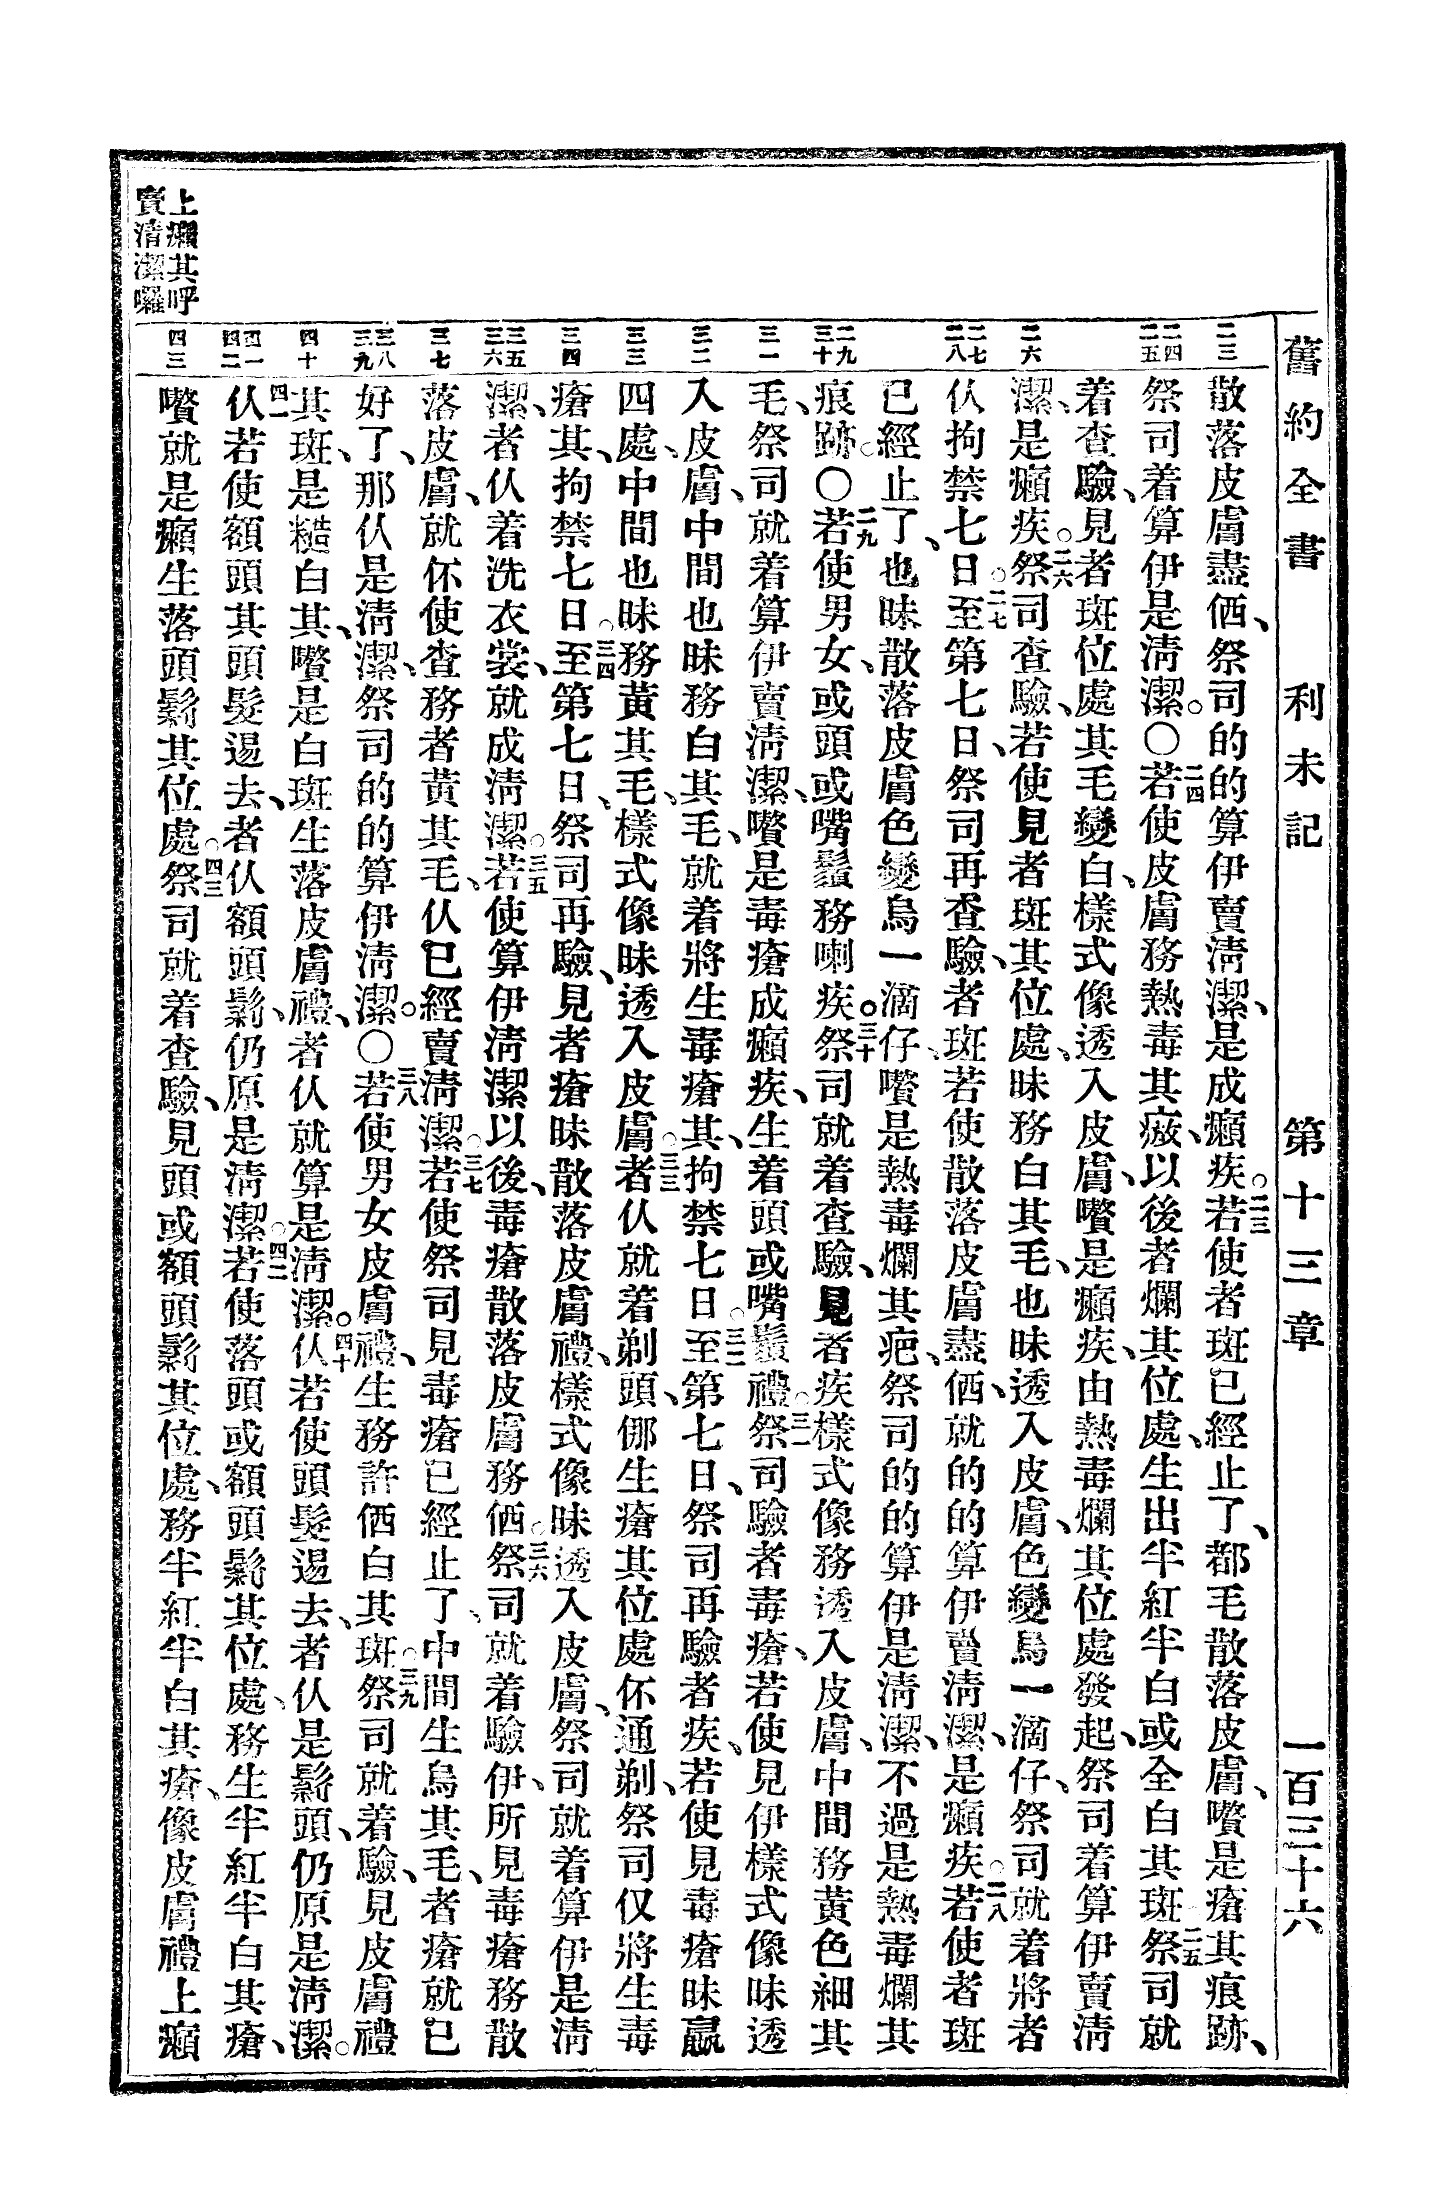 舊約全書 利未記 第十三章 一百三十六
二三
散落皮膚盡俹、祭司的的算伊賣淸潔、是成癩疾。二三若使者斑已經止了、都毛散落皮膚、嚽是瘡其痕跡、
二四 二五
祭司着算伊是淸潔。〇二四若使皮膚務熱毒其𤺪、以後者爛其位處、生出半紅半白或全白其斑、二五祭司就
着查驗、見者斑位處其毛變白、樣式像透入皮膚、嚽是癩疾、由熱毒爛其位處發起、祭司着算伊賣淸
二六
潔、是癩疾。二六祭司查驗、若使見者斑其位處、昧務白其毛、也昧透入皮膚、色變烏一滴仔、祭司就着將者
二七 二八
仈拘禁七日。二七至第七日、祭司再查驗、者斑若使散落皮膚盡俹、就的的算伊賣淸潔、是癩疾。二八若使者斑
已經止了、也昧散落皮膚色變烏一滴仔、嚽是熱毒爛其疤、祭司的的算伊是淸潔、不過是熱毒爛其
二九 三十
痕跡。〇二九若使男女、或頭或嘴鬚務喇疾。三十祭司就着查驗、見者疾樣式像務透入皮膚、中間務黃色細其
三一
毛、祭司就着算伊賣淸潔、嚽是毒瘡成癩疾、生着頭或嘴鬚禮。三一祭司驗者毒瘡、若使見伊樣式像昧透
三二
入皮膚、中間也昧務白其毛、就着將生毒瘡其、拘禁七日。三二至第七日、祭司再驗者疾、若使見毒瘡昧贏
三三
四處、中間也昧務黃其毛、樣式像昧透入皮膚。三三者仈就着剃頭、㑚生瘡其位處伓通剃、祭司仅將生毒
三四
瘡其、拘禁七日。三四至第七日、祭司再驗、見者瘡昧散落皮膚禮、樣式像昧透入皮膚、祭司就着算伊是淸
三五 三六
潔、者仈着洗衣裳、就成淸潔。三五若使算伊淸潔以後、毒瘡散落皮膚務俹。三六祭司就着驗伊、所見毒瘡務散
三七
落皮膚、就伓使查務者黃其毛、仈已經賣淸潔。三七若使祭司見毒瘡已經止了、中間生烏其毛、者瘡就已
三八 三九
好了、那仈是淸潔、祭司的的算伊淸潔。〇三八若使男女皮膚禮、生務許俹白其斑。三九祭司就着驗、見皮膚禮
四十
其斑、是糙白其、嚽是白斑生落皮膚禮、者仈就算是淸潔。四十仈若使頭髮逿去、者仈是鬎頭、仍原是淸潔。
四一 四二
四一仈若使額頭其頭髮逿去、者仈額頭鬎、仍原是淸潔。四二若使落頭或額頭鬎其位處、務生半紅半白其瘡、
四三
嚽就是癩生落頭鬎其位處。四三祭司就着查驗、見頭或額頭鬎其位處、務半紅半白其瘡、像皮膚禮上癩
上癩其呼
賣淸潔囉